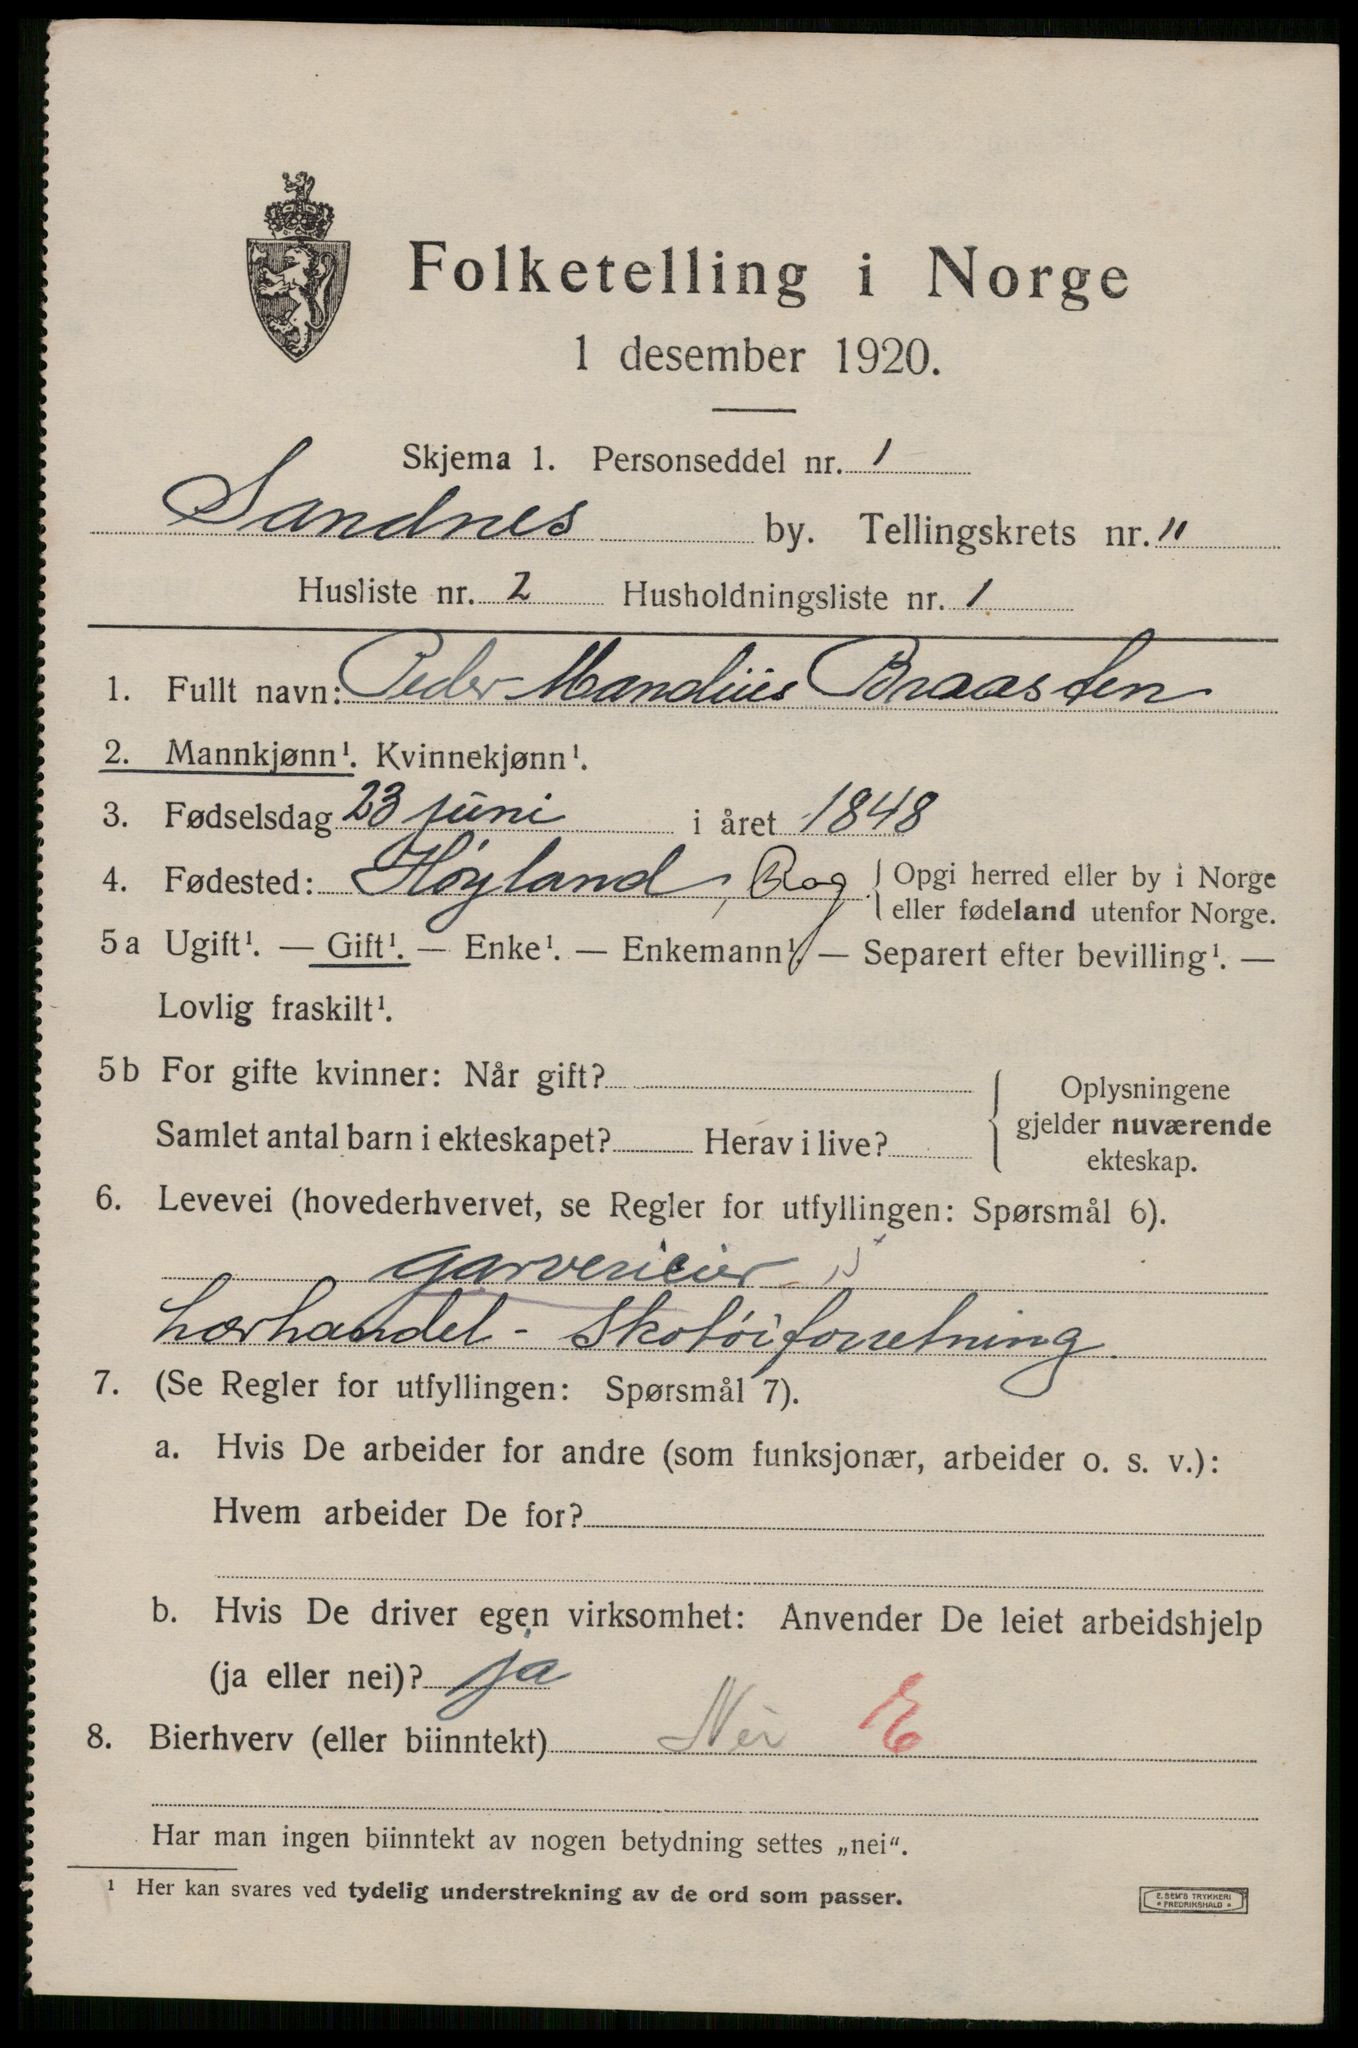 Folketelling i Norge
1 desember 1920.
Skjema 1. Personseddel nr. 1
Sandnes by. Tellingskrets nr. 11
Husliste nr. 2 Husholdningsliste nr. 1
1. Fullt navn: Peder Mandius Braasten
2. Mannkjønn¹. Kvinnekjønn¹.
3. Fødselsdag 23 juni i året 1848
4. Fødested: Høyland, Rog. { Opgi herred eller by i Norge
eller fødeland utenfor Norge.
5a Ugift¹. — Gift¹. — Enke¹. — Enkemann¹. — Separert efter bevilling¹. —
Lovlig fraskilt¹.
5b For gifte kvinner: Når gift?
Samlet antal barn i ekteskapet? Herav i live?
Oplysningene
gjelder nuværende
ekteskap.
6. Levevei (hovederhvervet, se Regler for utfyllingen: Spørsmål 6).
garverieier
Lærhandel - Skotøiforretning
7. (Se Regler for utfyllingen: Spørsmål 7).
a. Hvis De arbeider for andre (som funksjonær, arbeider o. s. v.):
Hvem arbeider De for?
b. Hvis De driver egen virksomhet: Anvender De leiet arbeidshjelp
(ja eller nei)? ja
8. Bierhverv (eller biinntekt) Nei E
Har man ingen biinntekt av nogen betydning settes „nei“.
¹ Her kan svares ved tydelig understrekning av de ord som passer.
E. SEM'S TRYKKERI
* FREDRIKSHALD *